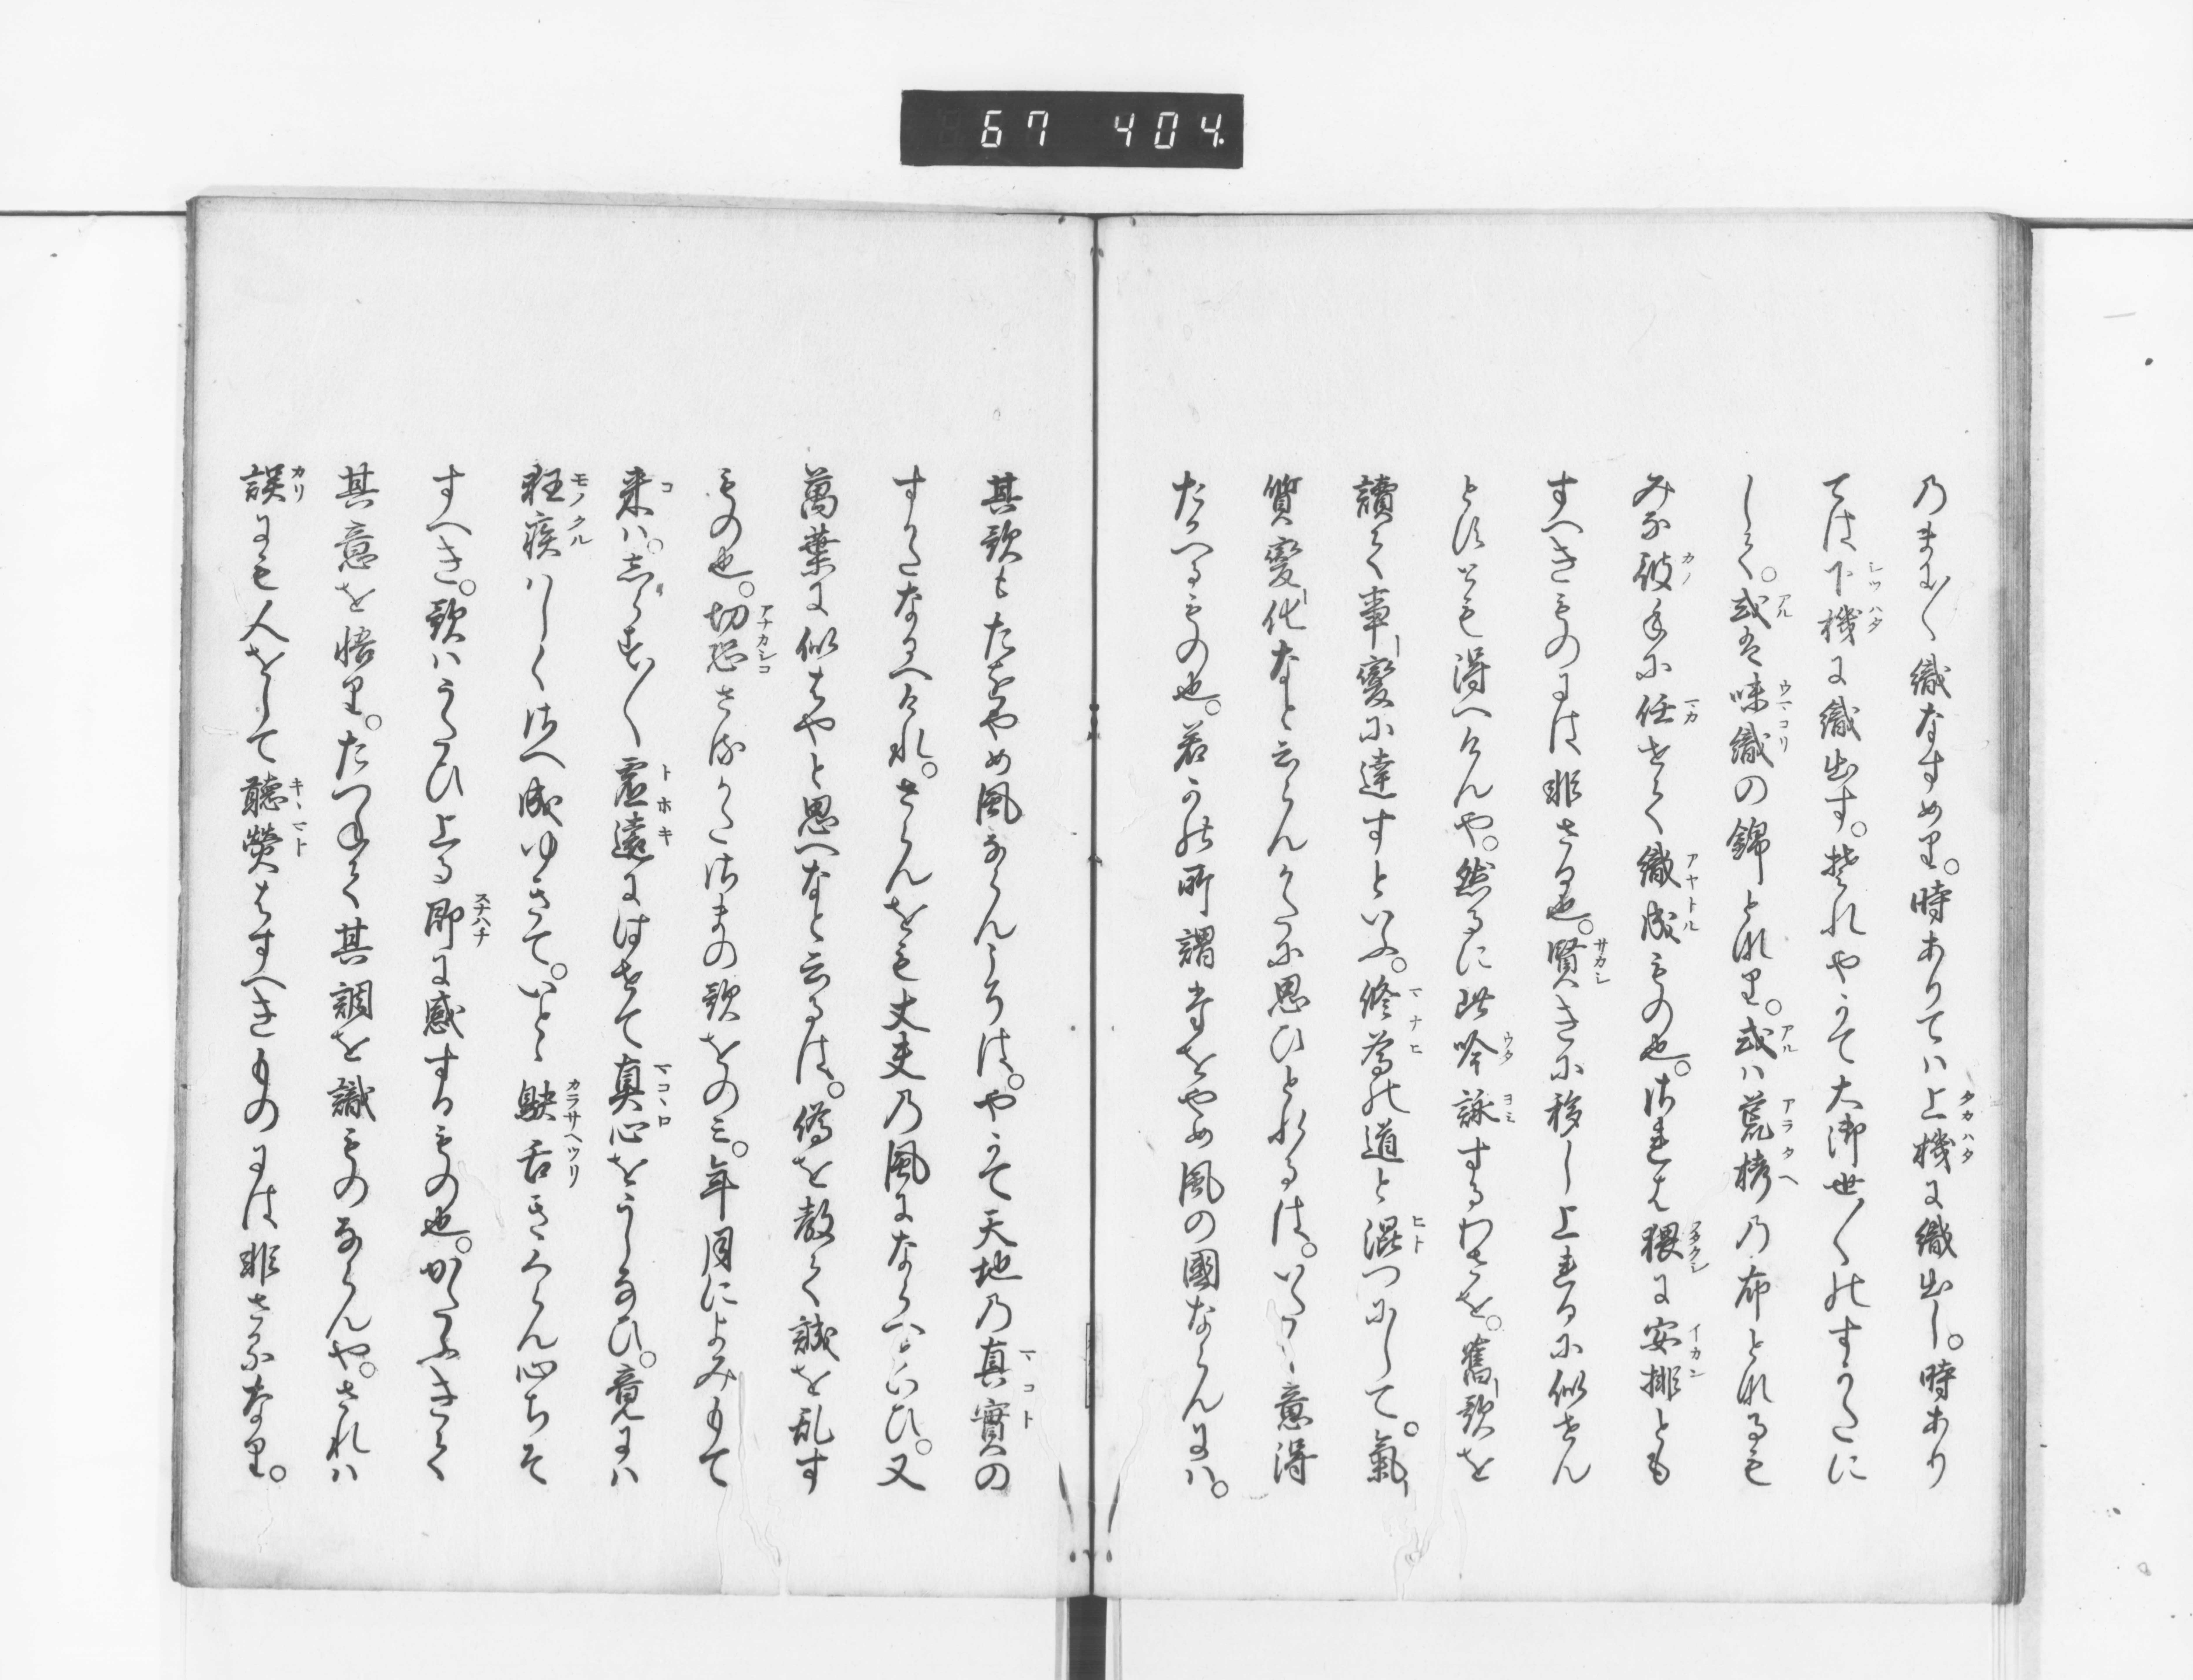 67 404.
乃まに〱織なすめり。時ありてハ上機に織出し。時あり
ては下機に織出す。其れやかて大御世〱のすかたに
して。或は味織の錦となれり。或ハ荒栲乃布となるも
みな彼手に任せて織成もの也。されは猥に安排とも
すへきものには非さる也。賢きに移し上たるに似せん
とすとも得へけんや。然るに此吟詠するわさを。舊歌を
讀て事変に達すといふ。修為の道と混つにして。氣
質変化なと云らんかたに思ひとれるは。いたく意得
たかへるもの也。若かの所謂たをやめ風の國ならんにハ。
其歌もたをやめ風ならんこそは。やかて天地乃真實の
すかたなるへけれ。さらんをも丈夫乃風にならへといひ。又
萬葉に似はやと思へなと云るは。偽を教て誠を乱す
もの也。切恐さるかたさまの歌をのミ。年月によみもて
来ハ。志らす〱虚遠にはせて真心をうしなひ。竟にハ
狂疾ハしくさへ成ゆきて。いとゝ鴃舌きくらん心ちそ
すへき。歌ハうたひ上る即に感するもの也。かたふきて
其意を悟り。たつねて其調を識ものならんや。されハ
誤にも人をして聽熒はすへきものには非さるなり。